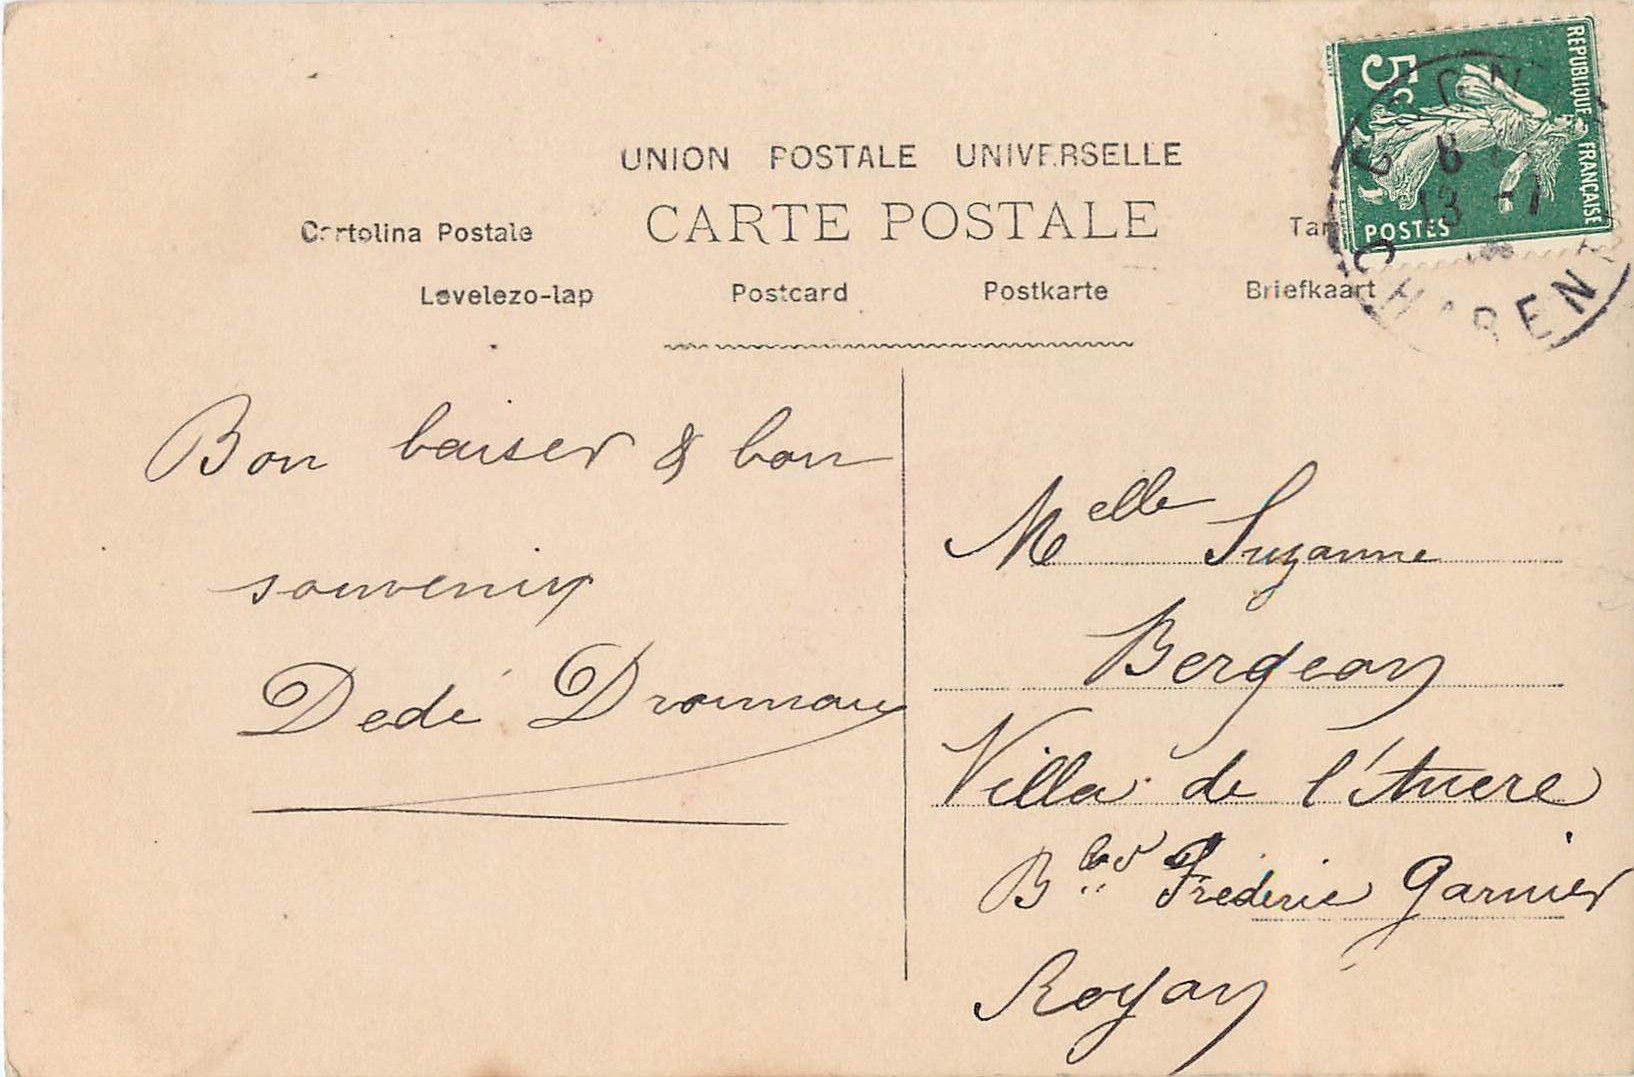 UNION POSTALE UNIVERSELLE
CARTE POSTALE
Cartolina Postale
Levelezo-lap Postcard Postkarte Briefkaart
REPUBLIQUE FRANÇAISE
5c
POSTES
8
13 -7
CHAREN
Bon baiser & bon
souvenir
Dedé
Melle Suzanne
Bergeon
Villa de
Bvd Frederic Garnier
Royan